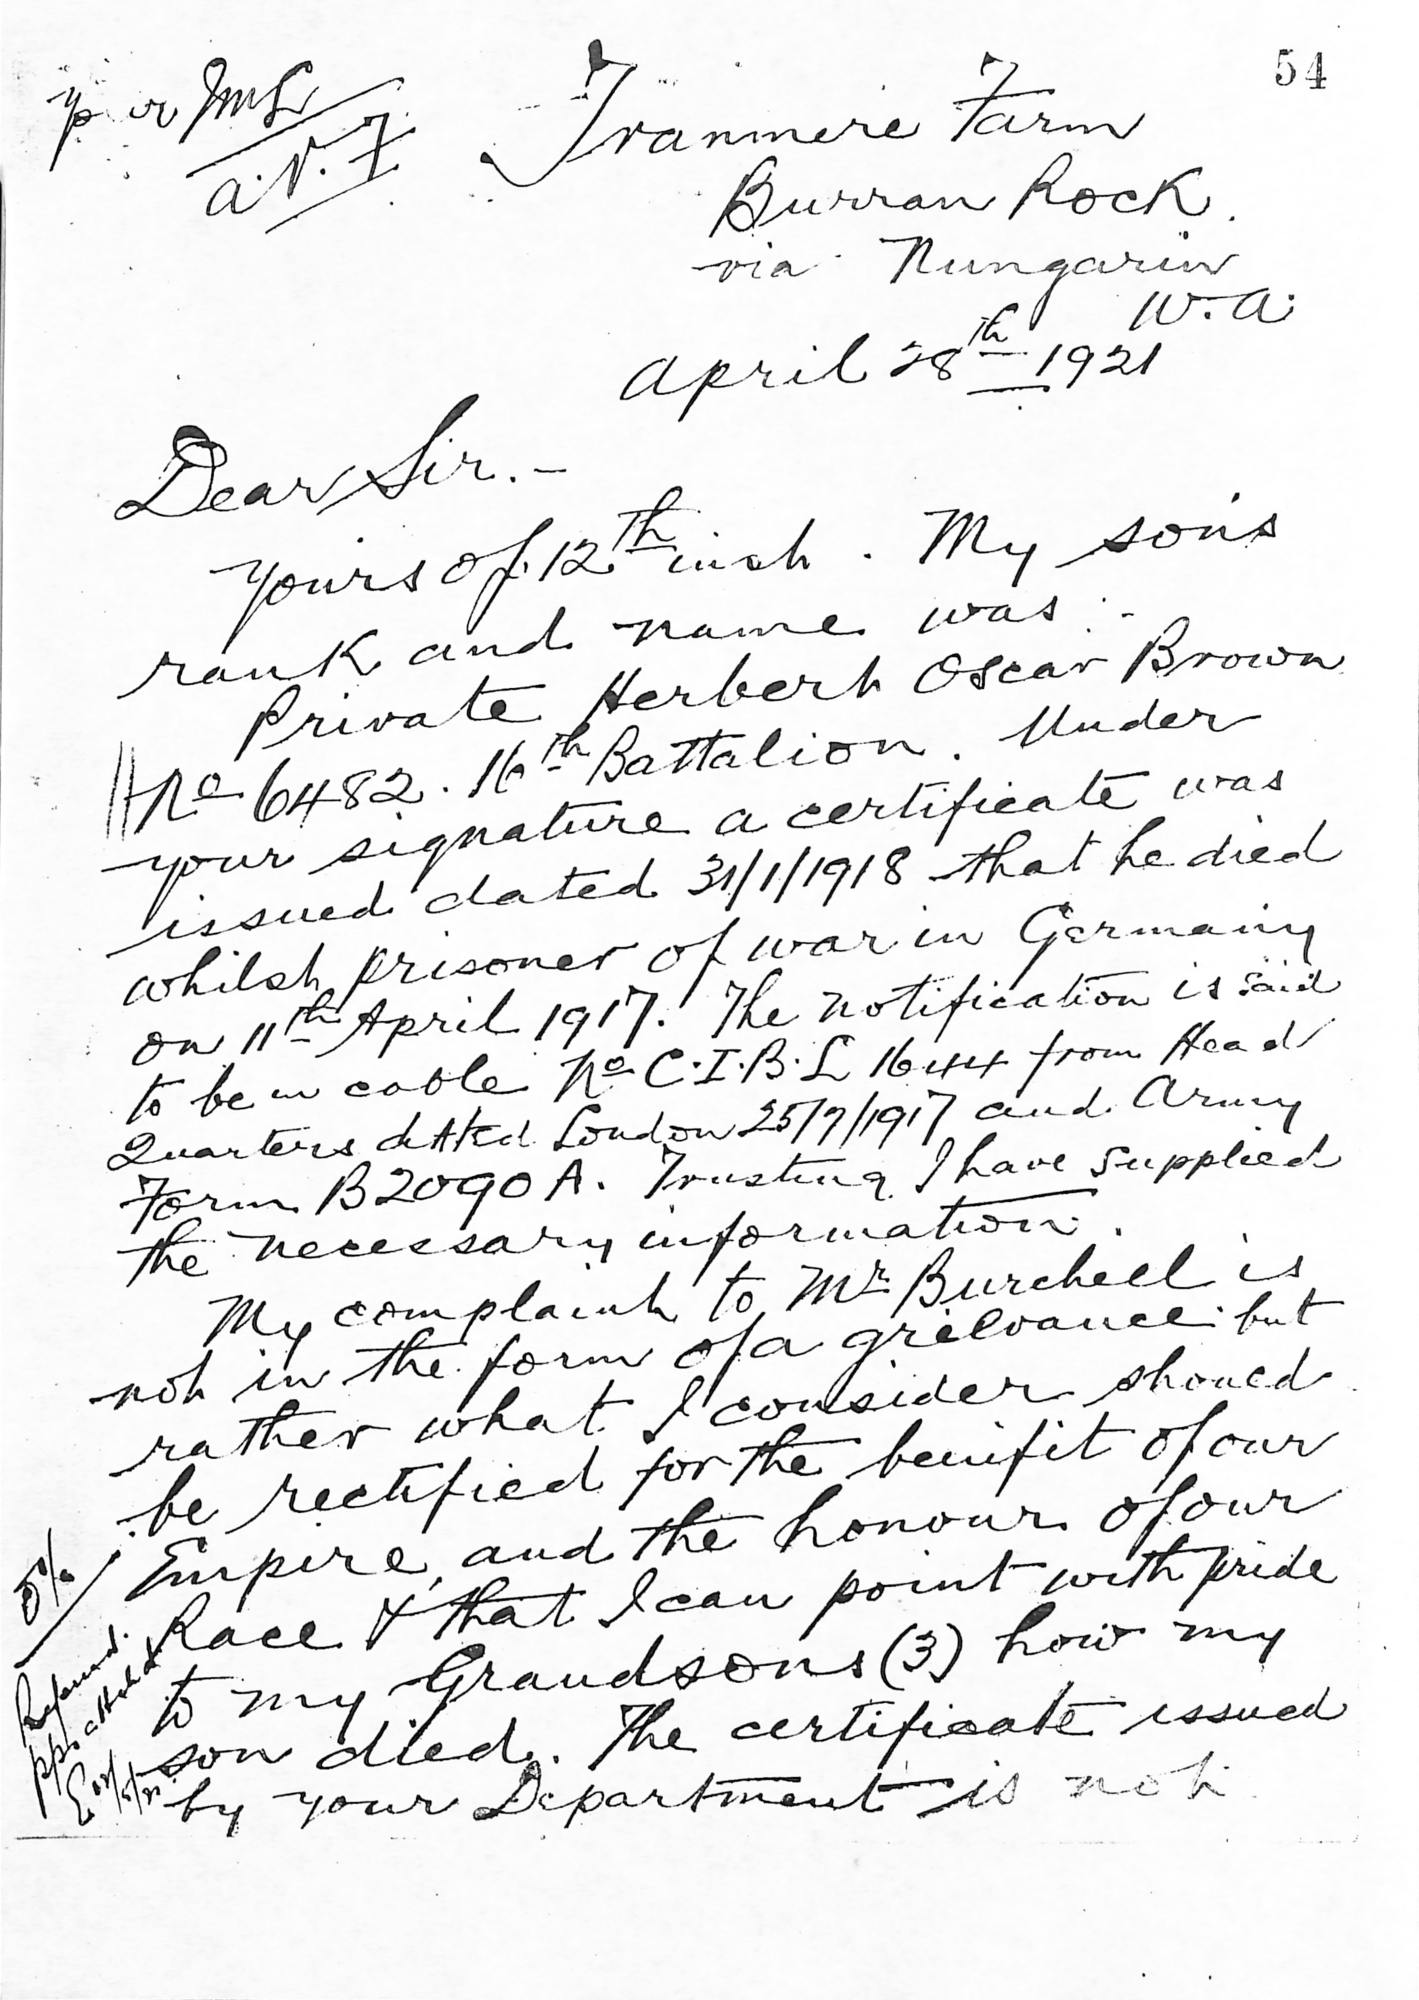 54
a.i.f
Tranmere Farm
Burran Rock.
via Nungarin
W.A.
April 28th 1921
Dear Sir. -
Yours of 12th inst. My son's
rank and name was :-
Private Herbert Oscar Brown
No 6482. 16th Battalion. Under
your signature a certificate was
issued dated 31/1/1918 that he died
whilst prisoner of war in Germany
on 11th April 1917. The notification is said
to be in cable No C.I.B.L 1644 from Head
Quarters dated London 25/7/1917 and Army
Form B2090A. Trusting I have supplied
the necessary information.
My complaint to Mr Burchell is
not in the form of a grievance but
rather what I consider should
be rectified for the benifit of our
Empire, and the honour of our
Race & that I can point with pride
to my Grandsons (3) how my
son died. The certificate issued
by your Department is not